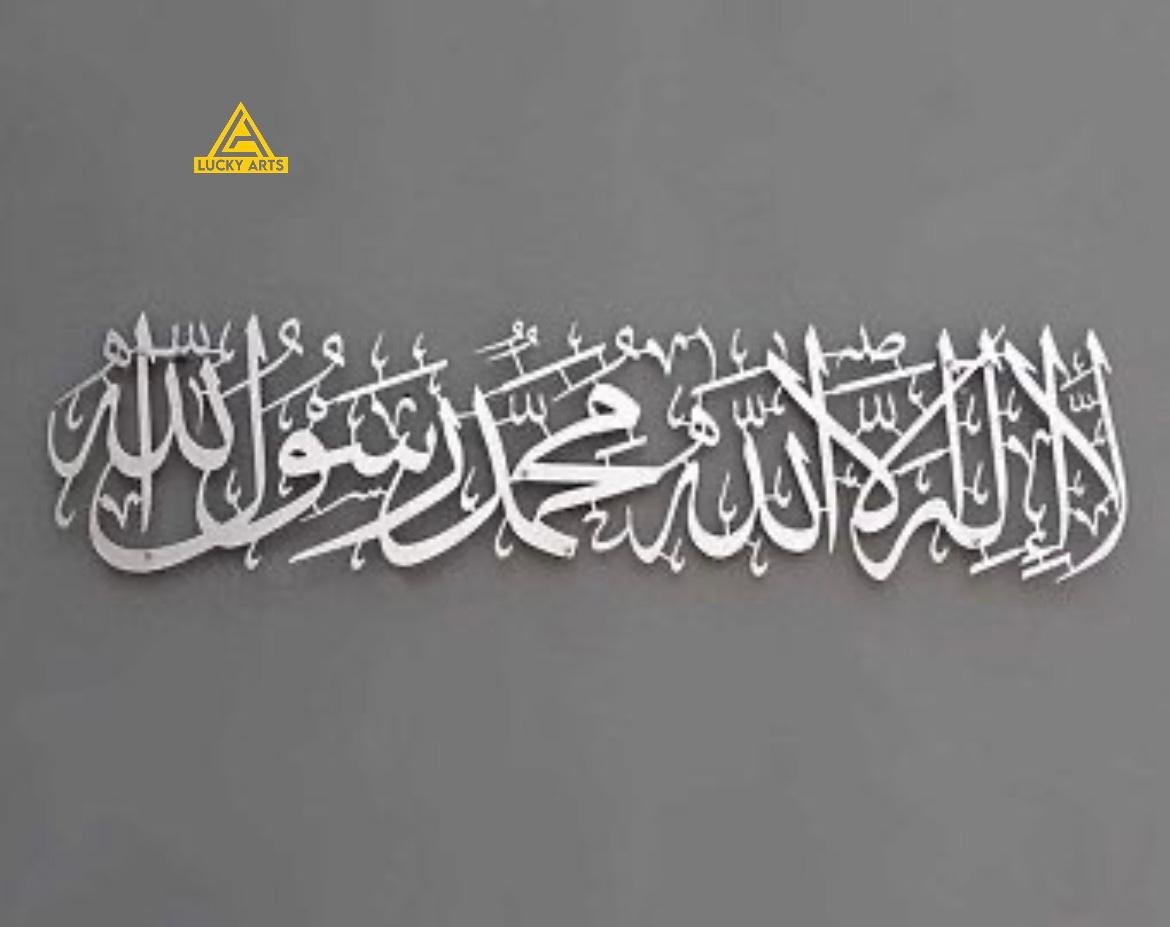 LUCKY ARTS
لا إله إلا الله محمد رسول الله